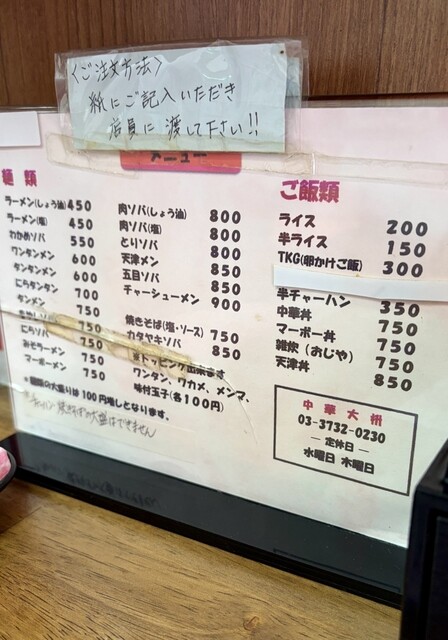 〈ご注文方法〉
紙にご記入いただき
店員に 渡して下さい!!
メニュー
麺類
ラーメン(しょう油) 450
ラーメン(塩) 450
わかめソバ 550
ワンタンメン 600
タンタンメン 600
にらタンタン 700
タンメン 750
750
にらソバ 750
みそラーメン 750
マーボーメン 750
麺類の大盛りは100円増しとなります。
※チャーハン 焼きそばの大盛はできません
肉ソバ(しょう油) 800
肉ソバ(塩) 800
とりソバ 800
天津メン 800
五目ソバ 850
チャーシューメン 900
焼きそば(塩・ソース) 750
カタヤキソバ 850
※トッピング出来ます
ワンタン、ワカメ、メンマ、
味付玉子(各100円)
ご飯類
ライス 200
半ライス 150
TKG(卵かけご飯) 300
半チャーハン 350
中華丼 750
マーボー丼 750
雑炊(おじや) 750
天津丼 850
中華大桝
03-3732-0230
― 定休日 ―
水曜日 木曜日